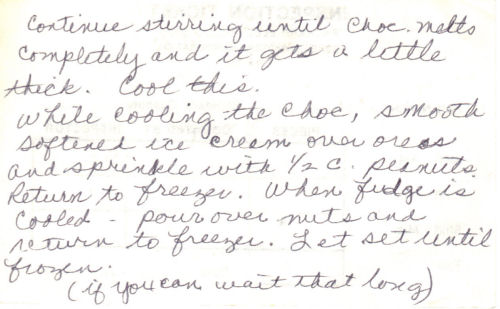 Continue stirring until choc. melts
completely and it gets a little
thick. Cool this.
While cooling the choc, smooth
softened ice cream over oreos
and sprinkle with 1/2 c. peanuts.
Return to freezer. When fudge is
cooled - pour over nuts and
return to freezer. Let set until
frozen.
(if you can wait that long)